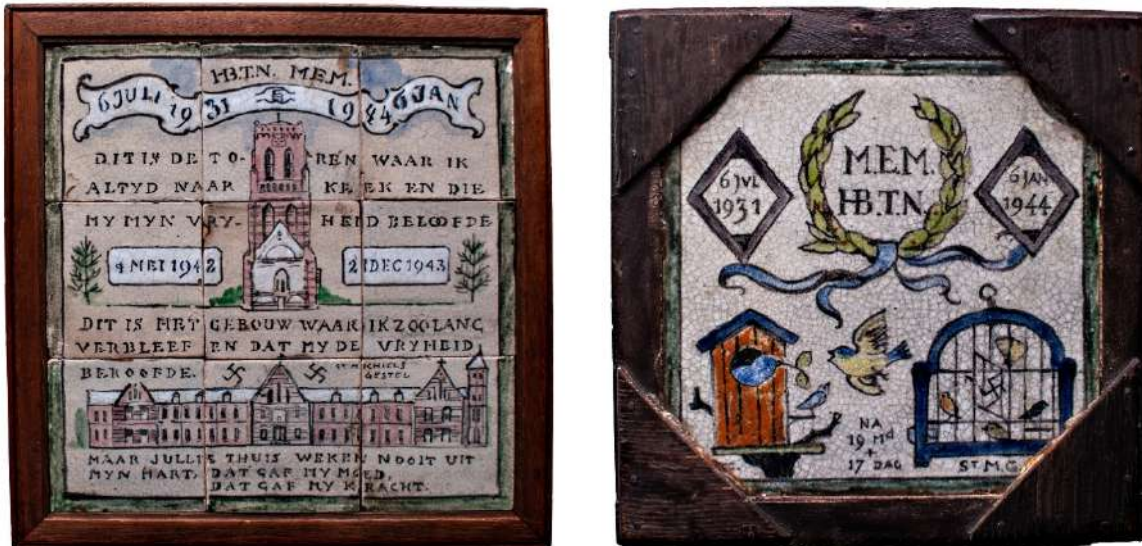 H.B.T.N. M.E.M.
6 JULI 1931 1944 6 JAN
DIT IS DE TO-REN WAAR IK
ALTYD NAAR KEEK EN DIE
MY MYN VRY-HEID BELOOFDE
4 MEI 1942 21 DEC 1943
DIT IS HET GEBOUW WAAR IK ZOO LANG
VERBLEEF EN DAT MY DE VRYHEID
BEROOFDE. ST MICHIELS
GESTEL
MAAR JULLIE THUIS WEKEN NOOIT UIT
MYN HART. DAT GAF MY MOED,
DAT GAF MY KRACHT.
M.E.M.
H.B.T.N.
6 JUL
1931
6 JAN
1944
NA
19 Md
+
17 DAG
ST. M. G.